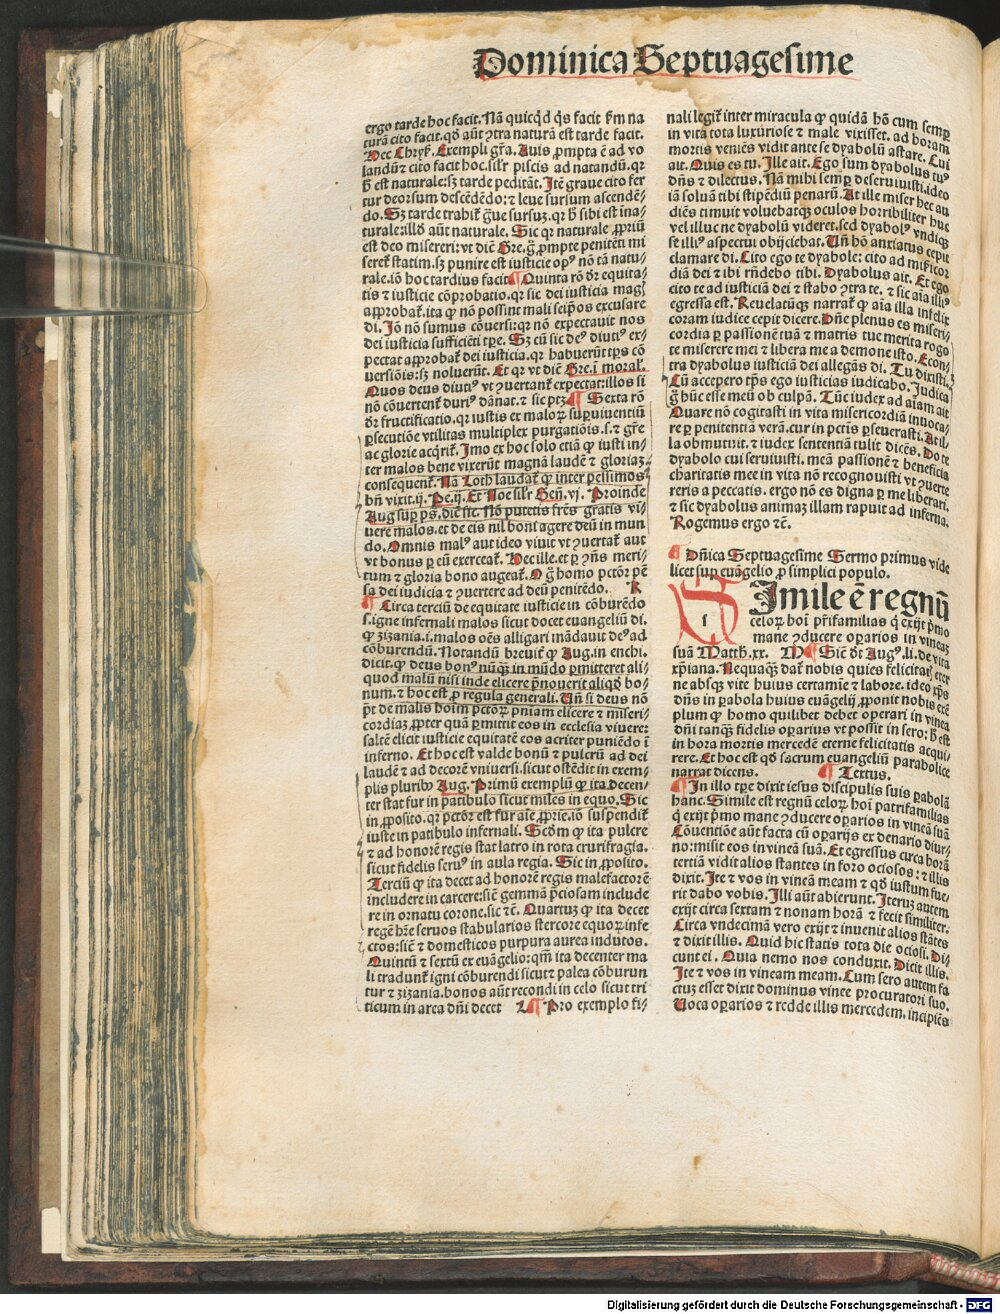 Dominica Septuagesime
ergo tarde hoc facit. Nā quicqd qs facit ẜm na
turā cito facit. qď aūt ꝯtra naturā est tarde facit.
Hec Chrẏẜ. Exempli gr̄a. Auis ꝓmpta ē ad vo
landū ⁊ cito facit hoc. silr piscis ad natandū. qr
h̄ est naturale: sꝫ tarde peditāt. Itē graue cito fer
tur deorsum descēdēdo: ⁊ leue sursum ascendē⸗
do. Sꝫ tarde trahit̄ ḡue sursuꝫ. qr h̄ sibi est ina⸗
turale: illď aūt naturale. Sic qr naturale ꝓpriū
est deo misereri: vt dicit Gre. g̊ ꝓmpte penitēti mi
seret̄ statim. sꝫ punire est iusticie opꝰ nō tā natu⸗
rale. iō hoc tardius facit ¶ Quinta rō ďr equita⸗
tis ⁊ iusticie cōprobatio. qr sic dei iusticia magl
approbat̄. ita ꝙ nō possint mali seip̄os excusare
di. Iō nō sumus cōuersi: qr nō expectauit nos
dei iusticia sufficiēti tp̄e. Sꝫ cū sic deꝰ diutiꝰ ex⸗
pectat approbat̄ dei iusticia. qr habuerūt tp̄s cō
uersiōis: sꝫ noluerūt. Et qr vt dicit Gre. i moral.
Quos deus diutiꝰ vt ꝯuertant̄ expectat: illos si
nō cōuertent̄ duriꝰ dānat. ⁊ sic ptꝫ ¶ Sexta rō
ďr fructificatio. qr iustis et maloꝝ suꝑuiuentiū
ꝑsecutiōe vtilitas multiplex purgatiōis. s. ⁊ gr̄e
ac glorie acqrit̄. Imo ex hoc solo etiā ꝙ iusti in⸗
ter malos bene vixerūt magnā laudē ⁊ gloriaꝫ
consequent̄. Nā Loth laudat̄ ꝙ inter pessimos
bn̄ vixit. ij. Pe. ij. Et Noe silr Gen̄. vj. Proinde
Aug sup ps. dicit sic. Nō putetis fr̄es gratis vi⸗
uere malos. et de eis nil boni agere deū in mun
do. Omnis malꝰ aut ideo viuit vt ꝯuertat̄ aut
vt bonus ꝑ eū exerceat̄. Hec ille. et ꝑ ꝯn̄s meri⸗
tum ⁊ gloria bono augeat̄. O g̊ homo pctōr pē
sa dei iudicia ⁊ ꝯuertere ad deū penitēdo. K
¶ Circa terciū de equitate iusticie in cōburēdo
s. igne infernali malos sicut docet euangeliū di.
ꝙ zizania. i. malos oēs alligari mādauit deꝰ ad
cōburendū. Notandū breuit̄ ꝙ Aug. in enchi.
dicit. ꝙ deus bonꝰ nūqꝫ in mūdo ꝑmitteret ali⸗
quod malū nisi inde elicere p̄nouerit aliqď bo⸗
num. ⁊ hoc est ꝓ regula generali. Vn̄ si deus nō
p̄t de malis hoīm pctōꝝ pn̄iam elicere ⁊ miseri⸗
cordiaꝫ ꝓpter quā ꝑmittit eos in ecclesia viuere:
saltē elicit iusticie equitatē eos acriter puniēdo ī
inferno. Et hoc est valde bonū ⁊ pulcrū ad dei
laudē ⁊ ad decorē vniuersi. sicut ostēdit in exem⸗
plis pluribꝰ Aug. Primū exemplū ꝙ ita decen⸗
ter stat fur in patibulo sicut miles in equo. Sic
in ꝓposito. qr pctōr est fur aīe ꝓprie. iō suspendit̄
iuste in patibulo infernali. Scďm ꝙ ita pulcre
⁊ ad honorē regis stat latro in rota crurifragia.
sicut fidelis seruꝰ in aula regia. Sic in ꝓposito.
Terciū ꝙ ita decet ad honorē regis malefactorē
includere in carcere: sic̄ gemmā p̄ciosam include
re in ornatu corone. sic ⁊c̄. Quartuꝫ ꝙ ita decet
regē hr̄e seruos stabularios stercore equoꝝ infe
ctos: sic̄ ⁊ domesticos purpura aurea indutos.
Quintū ⁊ sextū ex euāgelio: qm̄ ita decenter ma
li tradunt̄ igni cōburendi sicut ⁊ palea cōburun
tur ⁊ zizania. bonos aūt recondi in celo sicut tri
ticum in area dn̄i decet L ¶ Pro exemplo fi⸗
nali legit̄ inter miracula ꝙ quidā hō cum semꝑ
in vita tota luxuriose ⁊ male vixisset. ad horam
mortis veniēs vidit ante se dyabolū astare. Cui
ait. Quis es tu. Ille ait. Ego sum dyabolus tuꝰ
dn̄s ⁊ dilectus. Nā mihi semꝑ deseruiuisti. ideo
iā soluā tibi stipēdiū penarū. At ille miser hec au
diēs timuit voluebatqꝫ oculos horribiliter huc
vel illuc ne dyabolū videret. sed dyabolꝰ vndiqꝫ
se illiꝰ aspectui obijciebat. Vn̄ hō anxiatus cepit
clamare di. Cito ego te dyabole: cito ad mi̇ẜicor
diā dei ⁊ ibi rn̄debo tibi. Dyabolus ait. Et ego
cito te ad iusticiā dei ⁊ stabo ꝯtra te. ⁊ sic aīa illiꝰ
egressa est. Reuelatūqꝫ narrat̄ ꝙ aīa illa infelix
coram iudice cepit dicere. Dn̄e plenus es miseri⸗
cordia ꝑ passionē tuā ⁊ matris tue merita rogo
te miserere mei ⁊ libera me a demone isto. Econ⸗
tra dyabolus iusticiā dei allegās di. Tu dixisti.
Cū accepero tp̄s ego iusticias iudicabo. Iudica
g̊ hūc esse meū ob culpā. Tūc iudex ad aīam ait
Quare nō cogitasti in vita misericordiā inuoca⸗
re ꝑ penitentiā verā. cur in pctīs ꝑseuerasti. At il⸗
la obmutuit. ⁊ iudex sententiā tulit dicēs. Do te
dyabolo cui seruiuisti. meā passionē ⁊ beneficia
charitatis mee in vita nō recognouisti vt ꝯuerte
reris a peccatis. ergo nō es digna ꝑ me liberari.
⁊ sic dyabolus animaꝫ illam rapuit ad inferna.
Rogemus ergo ⁊c̄.
¶ Dn̄ica Septuagesime Sermo primus vide
licet suꝑ euāgelio ꝓ simplici populo.
Simile ē regnū
celoꝝ hoī pr̄ifamilias q̇ exijt p̄mo
mane ꝯducere oꝑarios in vineaꝫ
suā Matth. xx. M ¶ Sic̄ ďt Augꝰ. li. de vita
xp̄iana. Nequaqꝫ dat̄ nobis quies felicitatꝫ eter
ne absqꝫ vite huius certamīe ⁊ labore. ideo xp̄s
dn̄s in ꝑabola huius euāgelij ꝓponit nobis exē
plum ꝙ homo quilibet debet operari in vinea
dn̄i tanqꝫ fidelis oꝑarius vt possit in sero: h̄ est
in hora mortis mercedē eterne felicitatis acqui
rere. Et hoc est qď sacrum euangeliū parabolice
narrat dicens. ¶ Textus.
¶ In illo tp̄e dixit iesus discipulis suis ꝑabolā
hanc. Simile est regnū celoꝝ hoī patrifamilias
q̇ exijt p̄mo mane ꝯducere oꝑarios in vineā suā
Cōuentiōe aūt facta cū oꝑarijs ex denario diur⸗
no: misit eos in vineā suā. Et egressus circa horā
tertiā vidit alios stantes in foro ociosos: ⁊ illis
dixit. Ite ⁊ vos in vineā meam ⁊ qď iustum fue⸗
rit dabo vobis. Illi aūt abierunt. Iteruꝫ autem
exijt circa sextam ⁊ nonam horā ⁊ fecit similiter.
Circa vndecimā vero exijt ⁊ inuenit alios stātes
⁊ dixit illis. Quid hic statis tota die ociosi. Di⸗
cunt ei. Quia nemo nos conduxit. Dicit illis.
Ite ⁊ vos in vineam meam. Cum sero autem fa
ctuꝫ esset dixit dominus vinee procuratori suo.
Uoca oꝑarios ⁊ redde illis mercedem. incipiēs
Digitalisierung gefördert durch die Deutsche Forschungsgemeinschaft - DFG